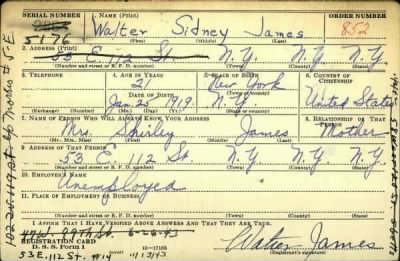 SERIAL NUMBER 1. NAME (Print) ORDER NUMBER
5176 Walter Sidney James 852
(First) (Middle) (Last)
2. ADDRESS (Print)
53 E. 112 St. N.Y. N.Y. N.Y.
(Number and street or R. F. D. number) (Town) (County) (State)
3. TELEPHONE 4. AGE IN YEARS 5. PLACE OF BIRTH 6. COUNTRY OF CITIZENSHIP
21 New York
DATE OF BIRTH (Town or county)
Jan 25 1919. N.Y. United States
(Exchange) (Number) (Mo.) (Day) (Yr.) (State or country)
7. NAME OF PERSON WHO WILL ALWAYS KNOW YOUR ADDRESS 8. RELATIONSHIP OF THAT PERSON
Mrs. Shirley James Mother
(Mr., Mrs., Miss) (First) (Middle) (Last)
9. ADDRESS OF THAT PERSON
53 E. 112 St. N.Y. N.Y. N.Y.
(Number and street or R. F. D. number) (Town) (County) (State)
10. EMPLOYER'S NAME
Unemployed
11. PLACE OF EMPLOYMENT OR BUSINESS
(Number and street or R. F. D. number) (Town) (County) (State)
I AFFIRM THAT I HAVE VERIFIED ABOVE ANSWERS AND THAT THEY ARE TRUE.
99th St. 6-26-43
REGISTRATION CARD
D. S. S. Form 1 16—17105 Walter James
53 E. 112 St. #14 11/13/43 (Registrant's signature)